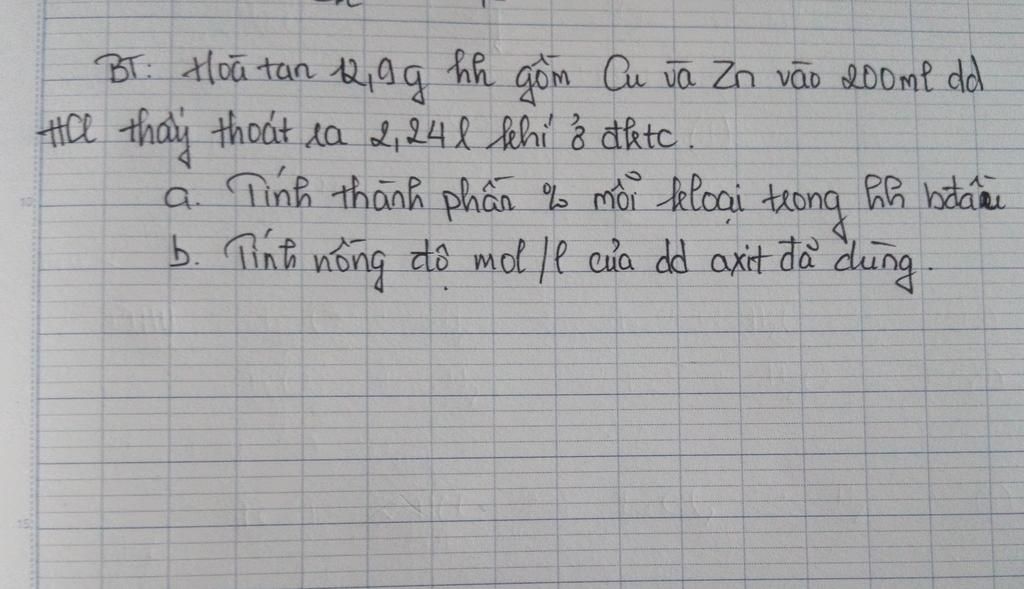 BT: Hoà tan 12,9g hh gồm Cu và Zn vào 200ml dd
HCl thấy thoát ra 2,24l khí ở đktc.
a. Tính thành phần % mỗi kloại trong hh bđầu
b. Tính nồng độ mol/l của dd axit đã dùng.